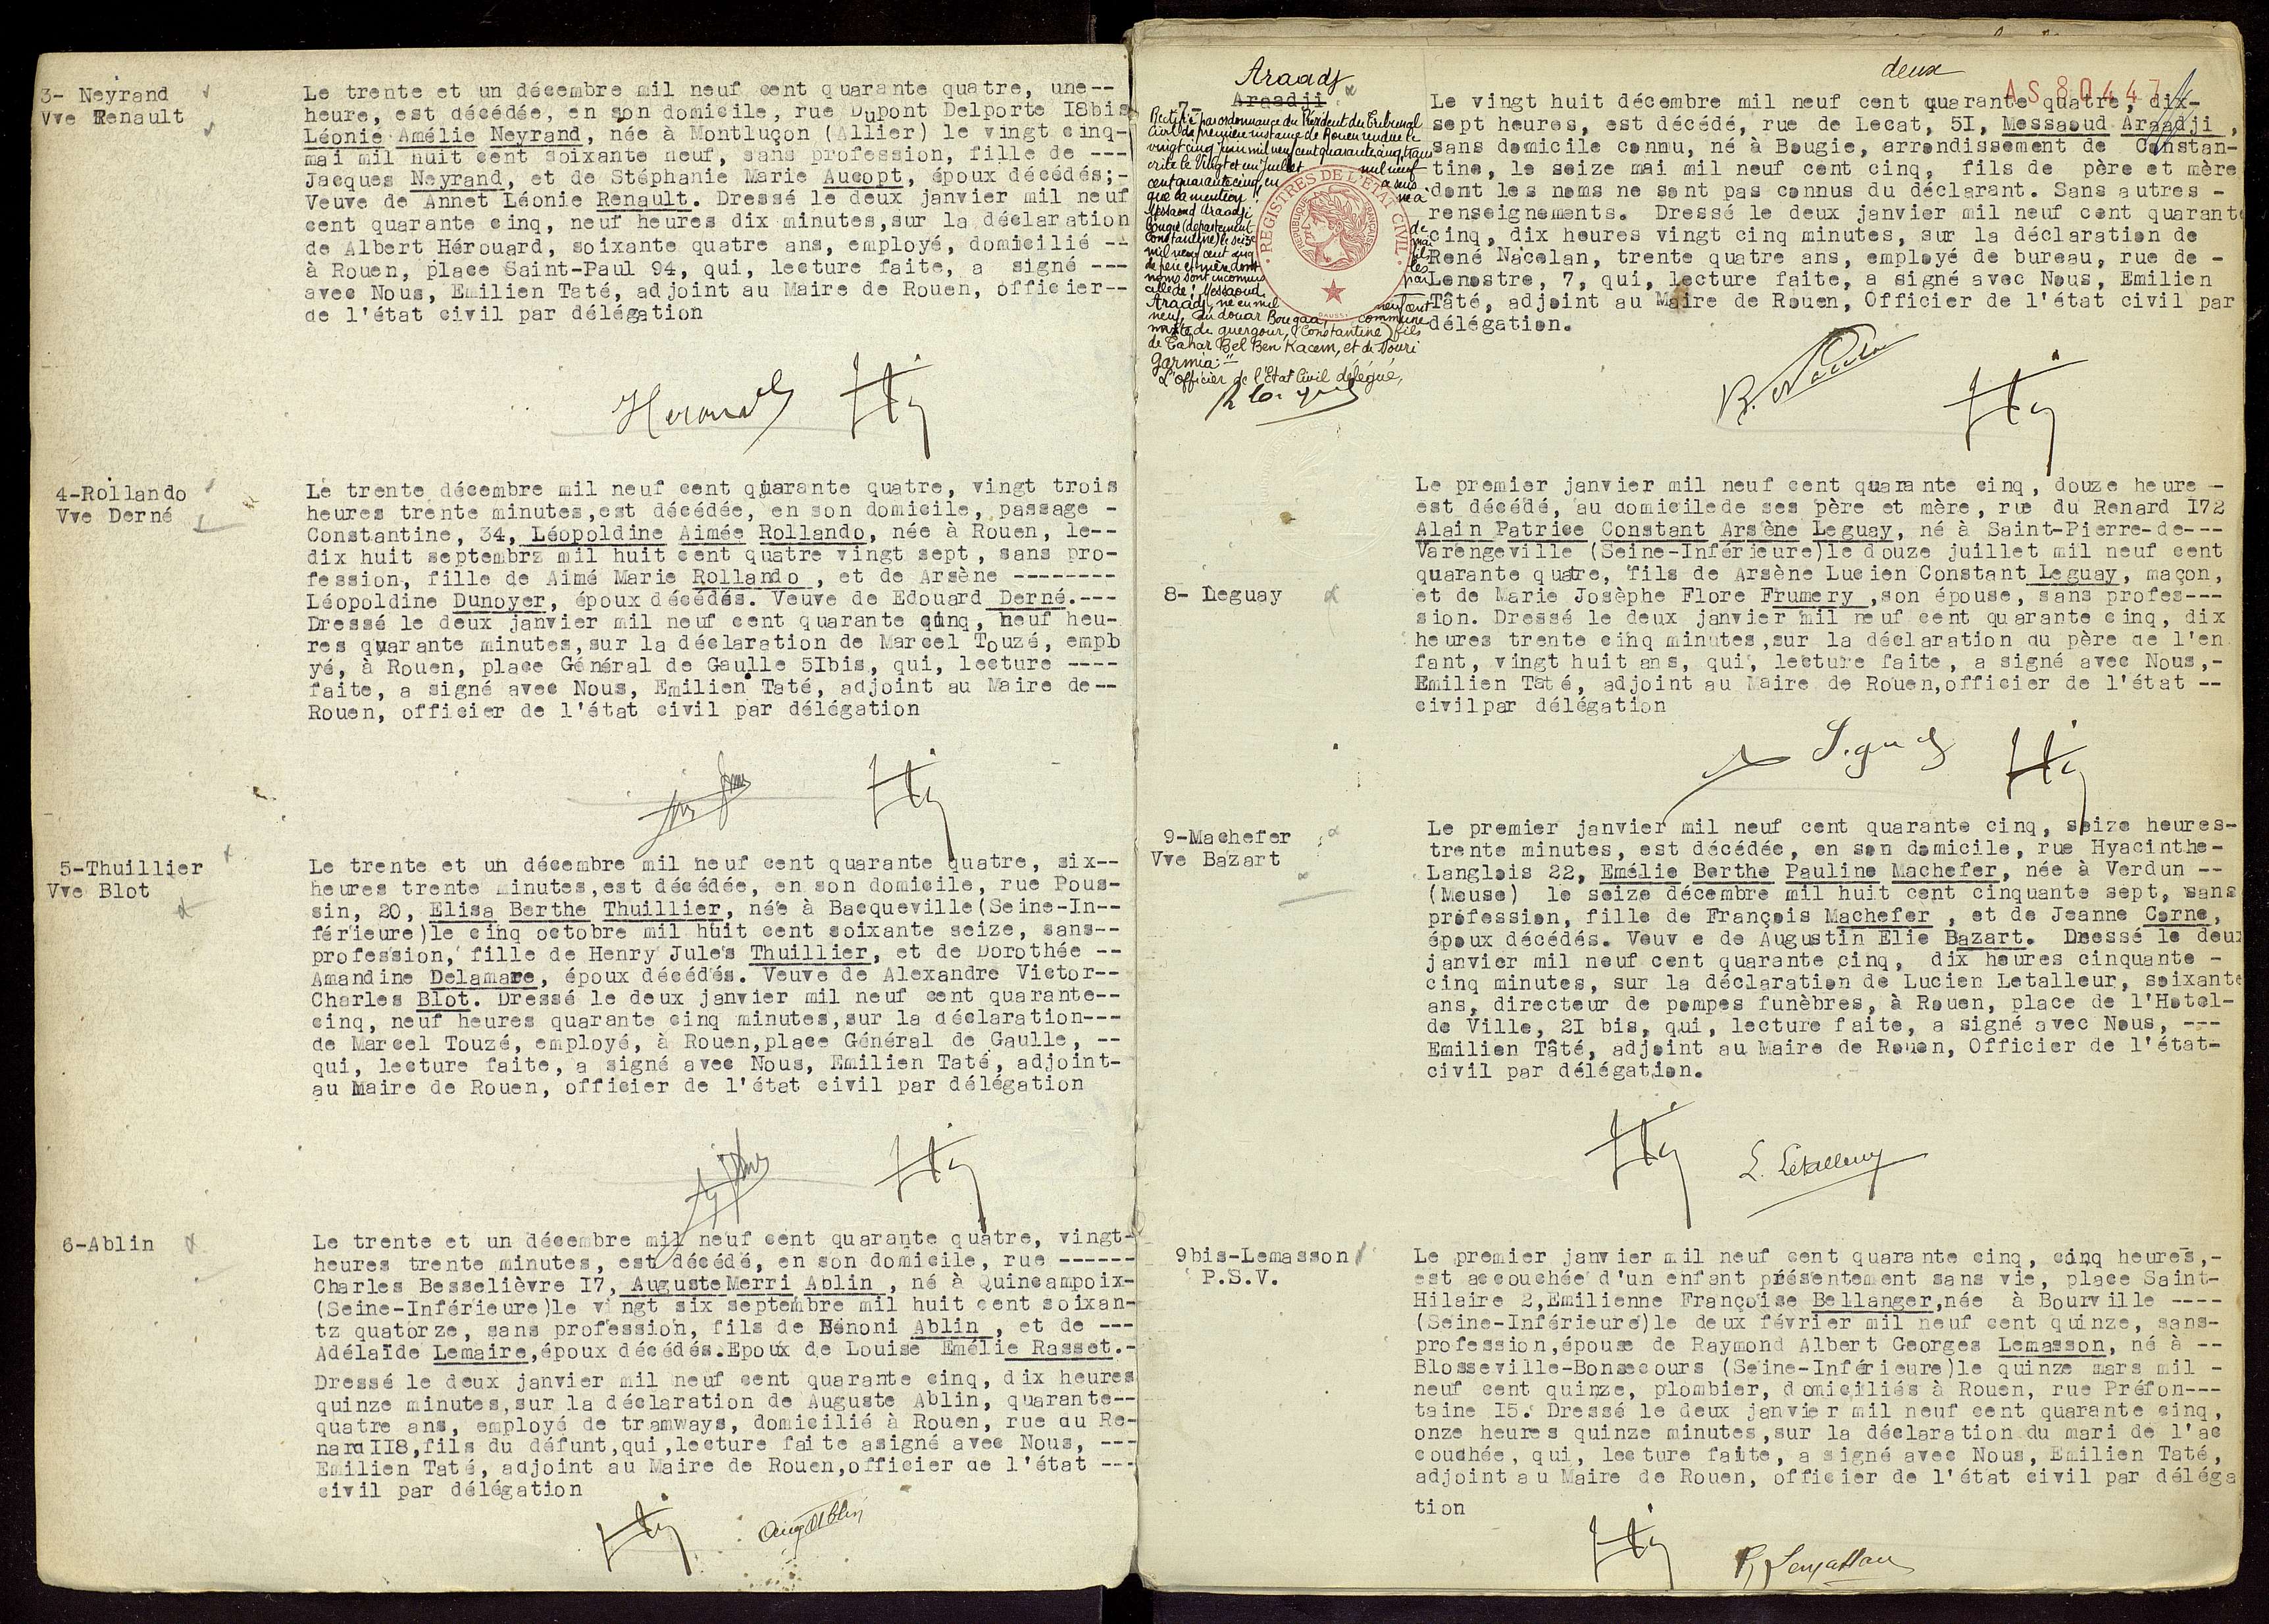 3- Neyrand
Vve Renault
Le trente et un décembre mil neuf cent quarante quatre, une--
heure, est décédée, en son domicile, rue Dupont Delporte I8bis
Léonie Amélie Neyrand, née à Montluçon (Allier) le vingt cinq-
mai mil huit cent soixante neuf, sans profession, fille de ---
Jacques Neyrand, et de Stéphanie Marie Aucopt, époux décédés;-
Veuve de Annet Léonie Renault. Dressé le deux janvier mil neuf
cent quarante cinq, neuf heures dix minutes,sur la déclaration
de Albert Hérouard, soixante quatre ans, employé, domicilié --
à Rouen, place Saint-Paul 94, qui, lecture faite, a signé ---
avec Nous, Emilien Taté, adjoint au Maire de Rouen, officier--
de l'état civil par délégation
4-Rollando
Vve Derné
Le trente décembre mil neuf cent quarante quatre, vingt trois
heures trente minutes,est décédée, en son domicile, passage -
Constantine, 34, Léopoldine Aimée Rollando, née à Rouen, le--
dix huit septembrz mil huit cent quatre vingt sept, sans pro-
fession, fille de Aimé Marie Rollando , et de Arsène --------
Léopoldine Dunoyer, époux décédés. Veuve de Edouard Derné.---
Dressé le deux janvier mil neuf cent quarante cinq, neuf heu-
res quarante minutes,sur la déclaration de Marcel Touzé, emplo
yé, à Rouen, place Général de Gaulle 5Ibis, qui, lecture ----
faite, a signé avec Nous, Emilien Taté, adjoint au Maire de--
Rouen, officier de l'état civil par délégation
5-Thuillier
Vve Blot
Le trente et un décembre mil neuf cent quarante quatre, six--
heures trente minutes,est décédée, en son domicile, rue Pous-
sin, 20, Elisa Berthe Thuillier, née à Bacqueville(Seine-In--
férieure)le cinq octobre mil huit cent soixante seize, sans--
profession, fille de Henry Jules Thuillier, et de Dorothée --
Amandine Delamare, époux décédés. Veuve de Alexandre Victor--
Charles Blot. Dressé le deux janvier mil neuf cent quarante--
cinq, neuf heures quarante cinq minutes,sur la déclaration---
de Marcel Touzé, employé, à Rouen,place Général de Gaulle, --
qui, lecture faite, a signé avec Nous, Emilien Taté, adjoint-
au Maire de Rouen, officier de l'état civil par délégation
6-Ablin
Le trente et un décembre mil neuf cent quarante quatre, vingt-
heures trente minutes, est décédé, en son domicile, rue ------
Charles Besselièvre I7, Auguste Merri Ablin , né à Quincampoix-
(Seine-Inférieure)le vingt six septembre mil huit cent soixan-
tz quatorze, sans profession, fils de Bénoni Ablin , et de ---
Adélaïde Lemaire,époux décédés.Epoux de Louise Emélie Rasset.-
Dressé le deux janvier mil neuf cent quarante cinq, dix heures
quinze minutes,sur la déclaration de Auguste Ablin, quarante--
quatre ans, employé de tramways, domicilié à Rouen, rue du Re-
nard II8,fils du défunt,qui,lecture faite asigné avec Nous, ---
Emilien Taté, adjoint au Maire de Rouen,officier de l'état ---
civil par délégation
Aug Ablin
deux
AS 80447
Araadj
Araadji
7-
Rectifié par ordonnance du Président du Tribunal
civil de première instance de Rouen rendue le
vingt cinq juin mil neuf cent quarante cinq, trans
crite le Vingt et un Juillet mil neuf
cent quarante cinq, en
que la mention :
Messaoud Araadji
Bougie (département de
Constantine) le seize mai
mil neuf cent cinq fils
de père et mère dont les
noms sont inconnus
Messaoud
Araadj, né en mil neuf cent
neuf, au douar Bougaa, commune
mixte de guergour, (Constantine) fils
de Tahar Bel Ben Kacem, et de Douri
Garmia."
L'officier de l'Etat Civil délégué,
REGISTRES DE L'ETAT CIVIL
REPUBLIQUE FRANÇAISE
Le vingt huit décembre mil neuf cent quarante quatre, dix-
sept heures, est décédé, rue de Lecat, 5I, Messaoud Araadji ,
sans domicile connu, né à Bougie, arrondissement de Constan-
tine, le seize mai mil neuf cent cinq, fils de père et mère
dont les noms ne sont pas connus du déclarant. Sans autres -
renseignements. Dressé le deux janvier mil neuf cent quarante
cinq, dix heures vingt cinq minutes, sur la déclaration de
René Nacelan, trente quatre ans, employé de bureau, rue de -
Lenostre, 7, qui, lecture faite, a signé avec Nous, Emilien
Tâté, adjoint au Maire de Rouen, Officier de l'état civil par
délégation.
8- Leguay
Le premier janvier mil neuf cent quarante cinq, douze heure -
est décédé, au domicilede ses père et mère, rue du Renard I72
Alain Patrice Constant Arsène Leguay, né à Saint-Pierre-de---
Varengeville (Seine-Inférieure)le douze juillet mil neuf cent
quarante quatre, fils de Arsène Lucien Constant Leguay, maçon,
et de Marie Josèphe Flore Frumery ,son épouse, sans profes---
sion. Dressé le deux janvier mil neuf cent quarante cinq, dix
heures trente cinq minutes,sur la déclaration du père de l'en
fant, vingt huit ans, qui, lecture faite, a signé avec Nous,-
Emilien Taté, adjoint au Maire de Rouen,officier de l'état --
civilpar délégation
9-Machefer
Vve Bazart
Le premier janvier mil neuf cent quarante cinq, seize heures-
trente minutes, est décédée, en son domicile, rue Hyacinthe-
Langlois 22, Emélie Berthe Pauline Machefer, née à Verdun --
(Meuse) le seize décembre mil huit cent cinquante sept, sans
profession, fille de François Machefer , et de Jeanne Corne,
époux décédés. Veuv e de Augustin Elie Bazart. Dressé le deux
janvier mil neuf cent quarante cinq, dix heures cinquante -
cinq minutes, sur la déclaration de Lucien Letalleur, soixante
ans, directeur de pompes funèbres, à Rouen, place de l'Hotel-
de Ville, 2I bis, qui, lecture faite, a signé avec Nous, ---
Emilien Tâté, adjoint au Maire de Rouen, Officier de l'état-
civil par délégation.
L. Letalleur
9bis-Lemasson
P.S.V.
Le premier janvier mil neuf cent quarante cinq, cinq heures,-
est accouchée d'un enfant présentement sans vie, place Saint-
Hilaire 2,Emilienne Françoise Bellanger,née à Bourville ----
(Seine-Inférieure)le deux février mil neuf cent quinze, sans-
profession,épouse de Raymond Albert Georges Lemasson, né à --
Blosseville-Bonsecours (Seine-Inférieure)le quinze mars mil -
neuf cent quinze, plombier, domiciliés à Rouen, rue Préfon---
taine I5. Dressé le deux janvier mil neuf cent quarante cinq,
onze heures quinze minutes,sur la déclaration du mari de l'ac
couchée, qui, lecture faite, a signé avec Nous, Emilien Taté,
adjoint au Maire de Rouen, officier de l'état civil par déléga
tion